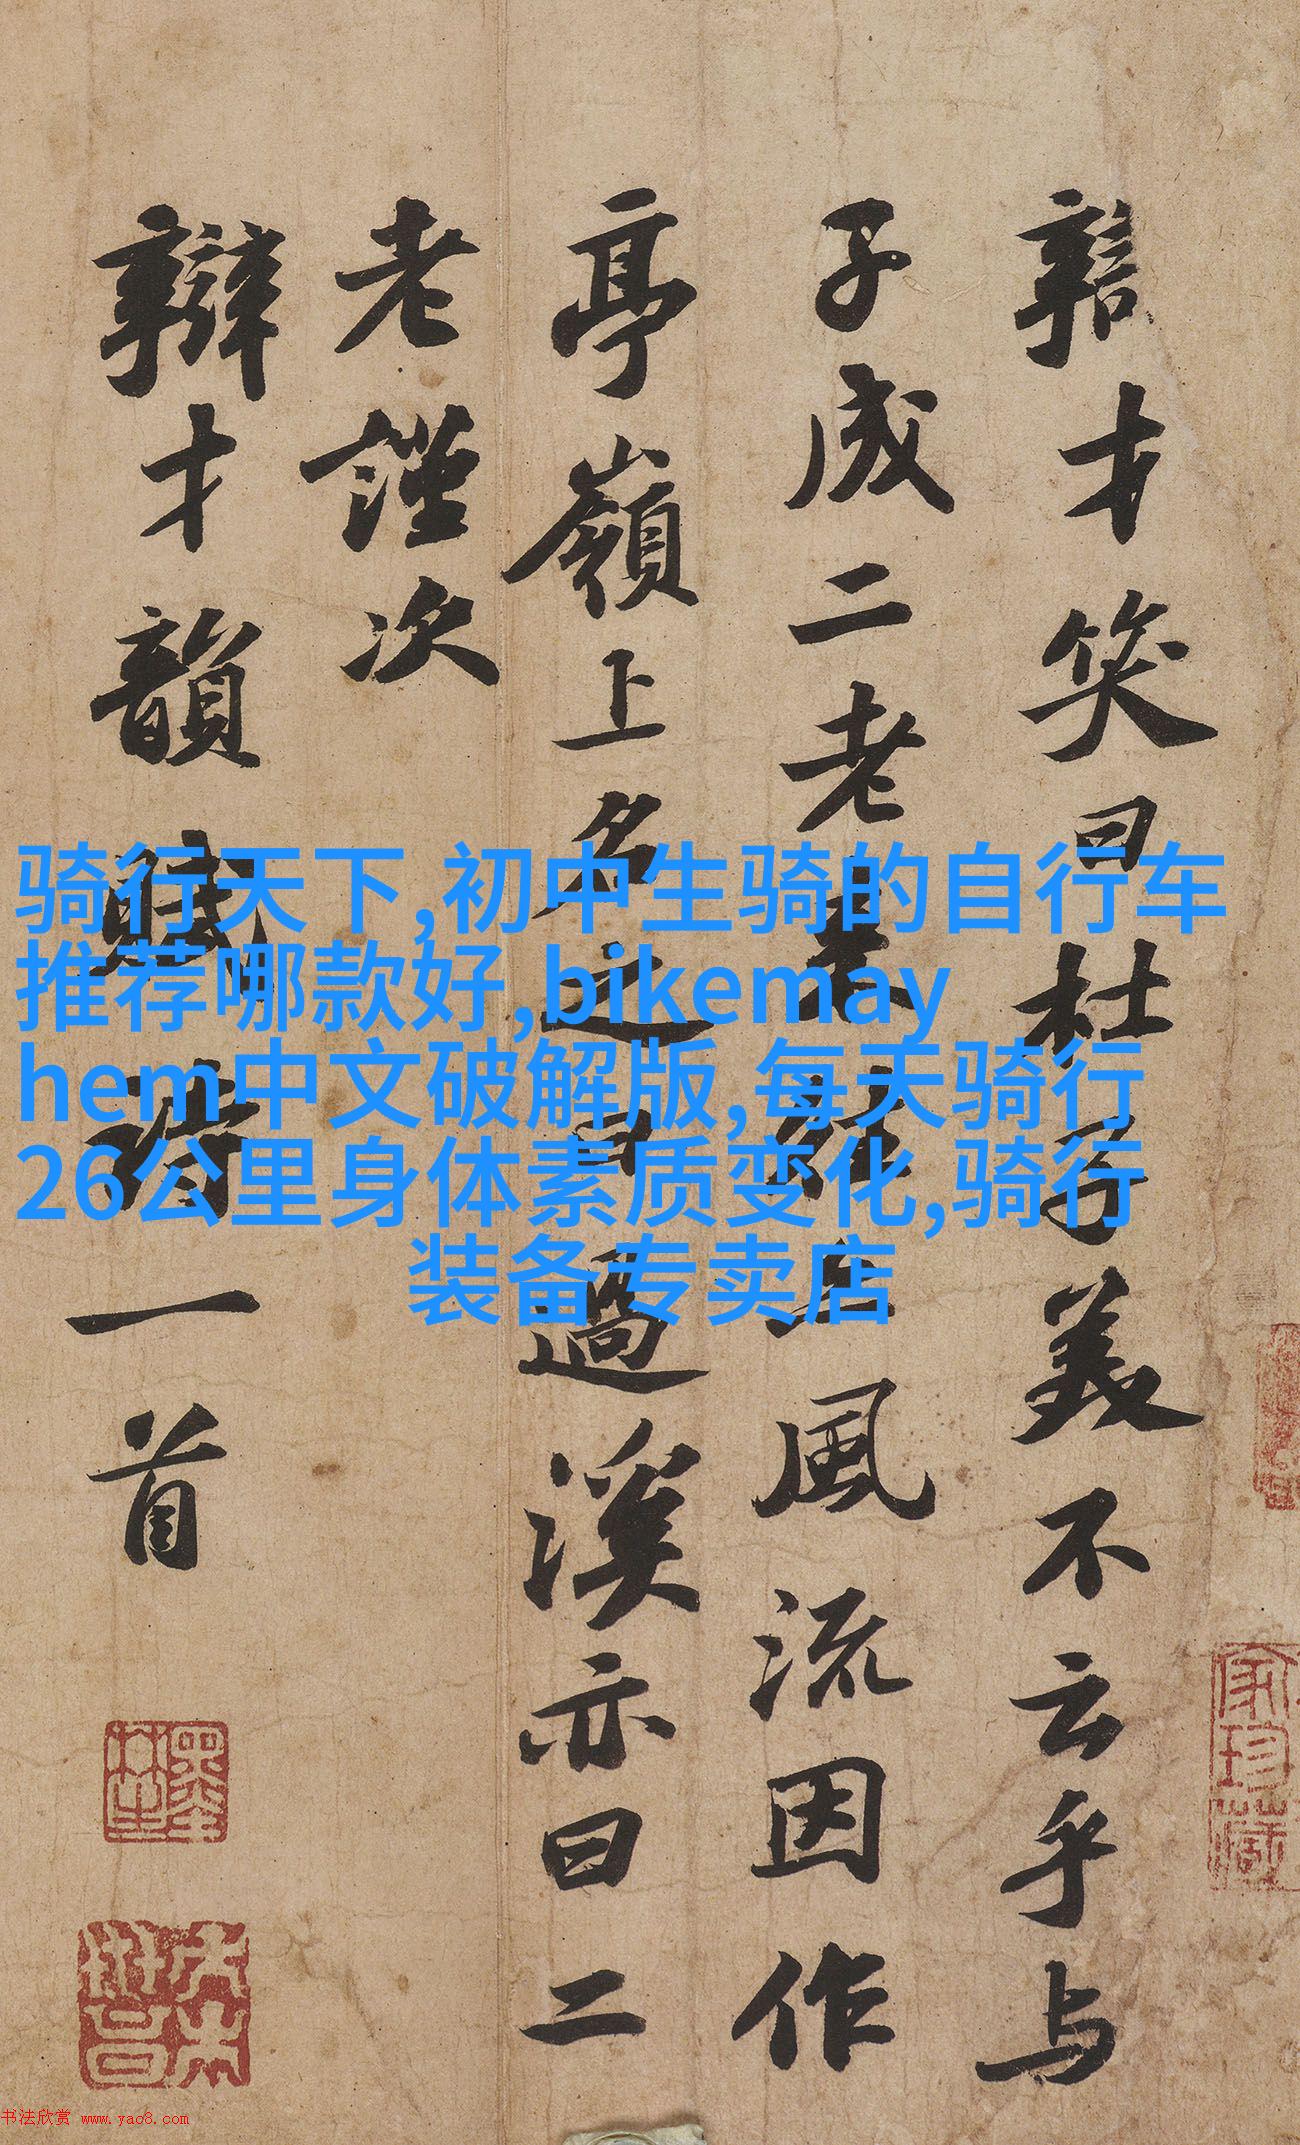 辯才笑曰杜子美不云乎与
子成二老来往亦風流因作
亭嶺上名之曰過溪亦曰二
老謹次
辯才韻賦詩一首
骑行天下,初中生骑的自行车
推荐哪款好,bikemay
hem中文破解版,每天骑行
26公里身体素质变化,骑行
装备专卖店
家珍藏
书法欣赏 www.yac8.com